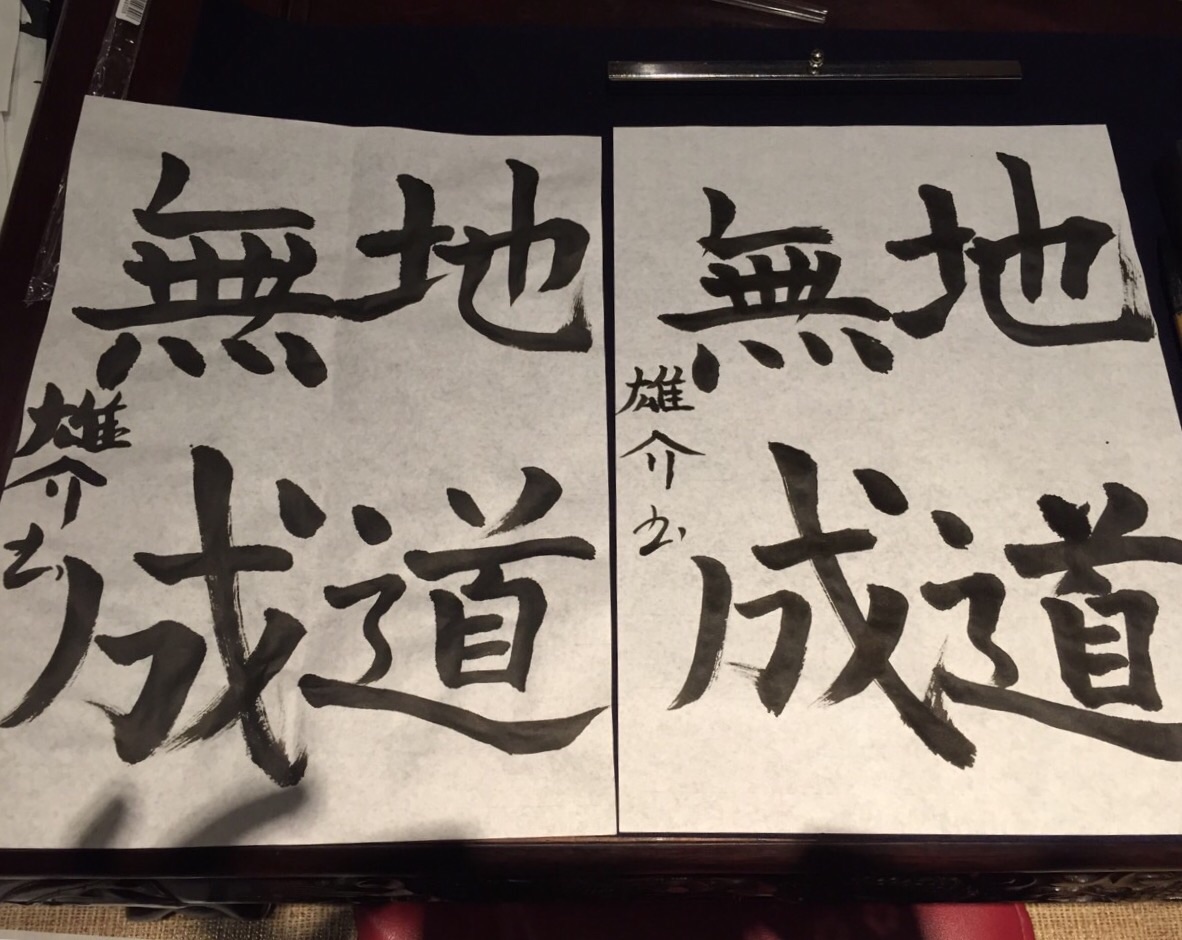 地道
無成
雄介书
地道
無成
雄介书